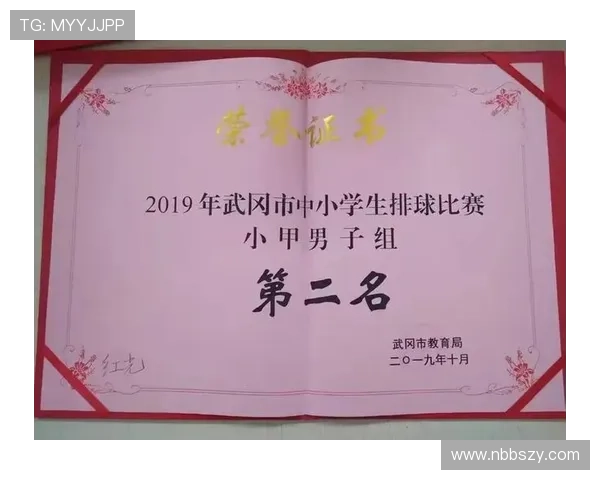 TG: MYYJJPP
荣誉证书
2019年武冈市中小学生排球比赛
小甲男子组
第二名
武冈市教育局
二〇一九年十月
红光
www.nbbszy.com